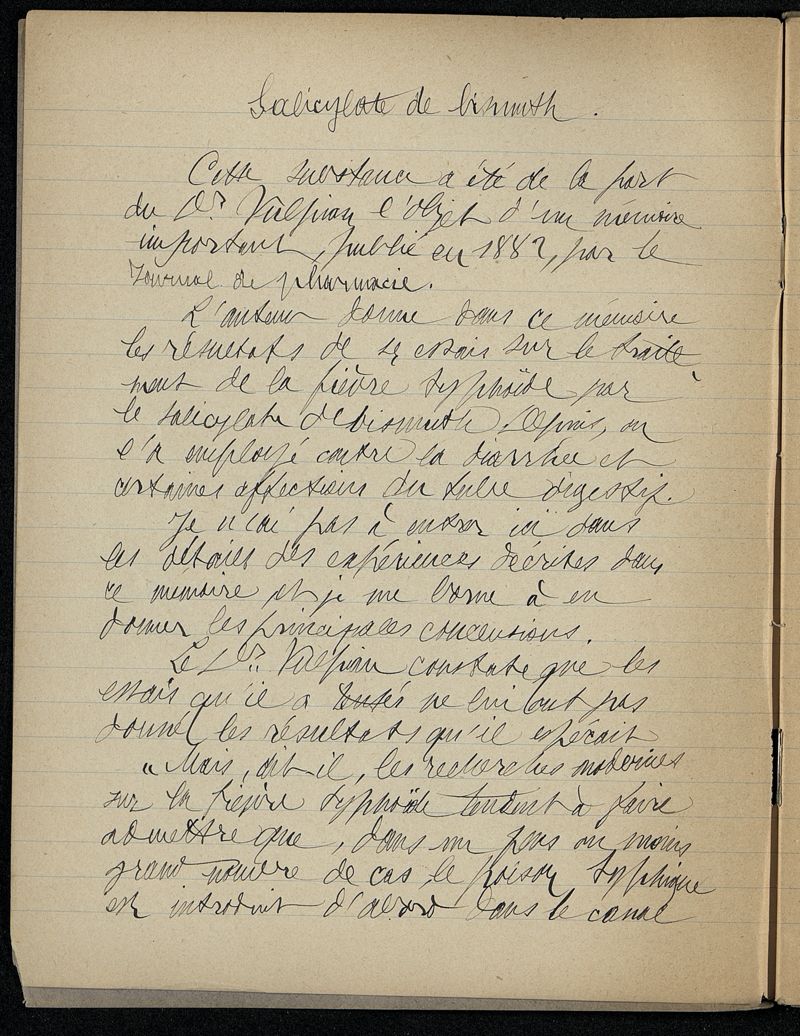 Salicylate de bismuth.
Cette substance a été de la part
du Dr. Vulpian l'objet d'un mémoire
important, publié en 1882, par le
Journal de pharmacie.
L'auteur donne dans ce mémoire
les résultats de ses essais sur le traite
ment de la fièvre typhoïde par
le salicylate de bismuth. Depuis, on
l'a employé contre la diarrhée et
certaines affections du tube digestif.
Je n'ai pas à entrer ici dans
les détails des expériences décrites dans
ce mémoire et je me borne à en
donner les principales conclusions.
Le Dr. Vulpian constate que les
essais qu'il a tentés ne lui ont pas
donné les résultats qu'il espérait
"Mais, dit il, les recherches modernes
sur la fièvre typhoïde tendent à faire
admettre que, dans un plus ou moins
grand nombre de cas, le poison typhique
est introduit d'abord dans le canal